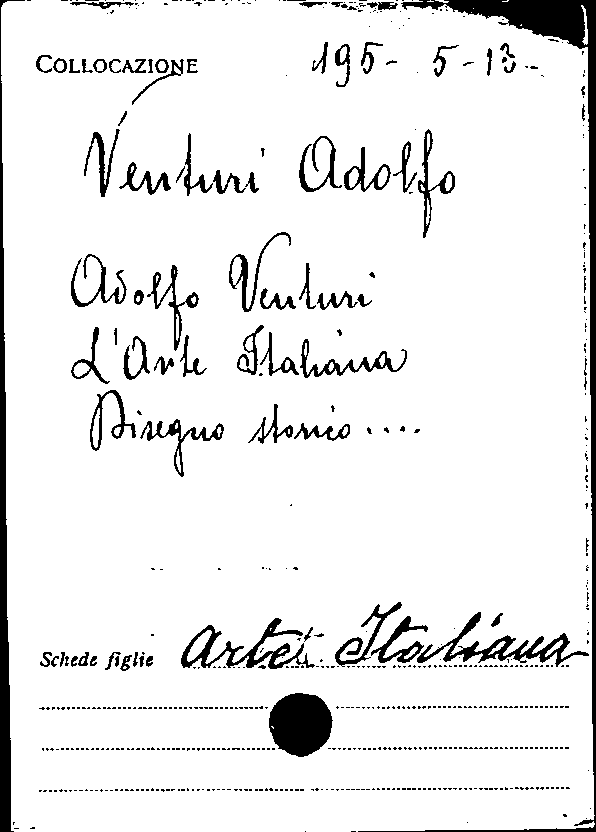 COLLOCAZIONE 195- 5-13-
Venturi Adolfo
Adolfo Venturi
L'Arte Italiana
Disegno storico ....
Schede figlie Arte Italiana